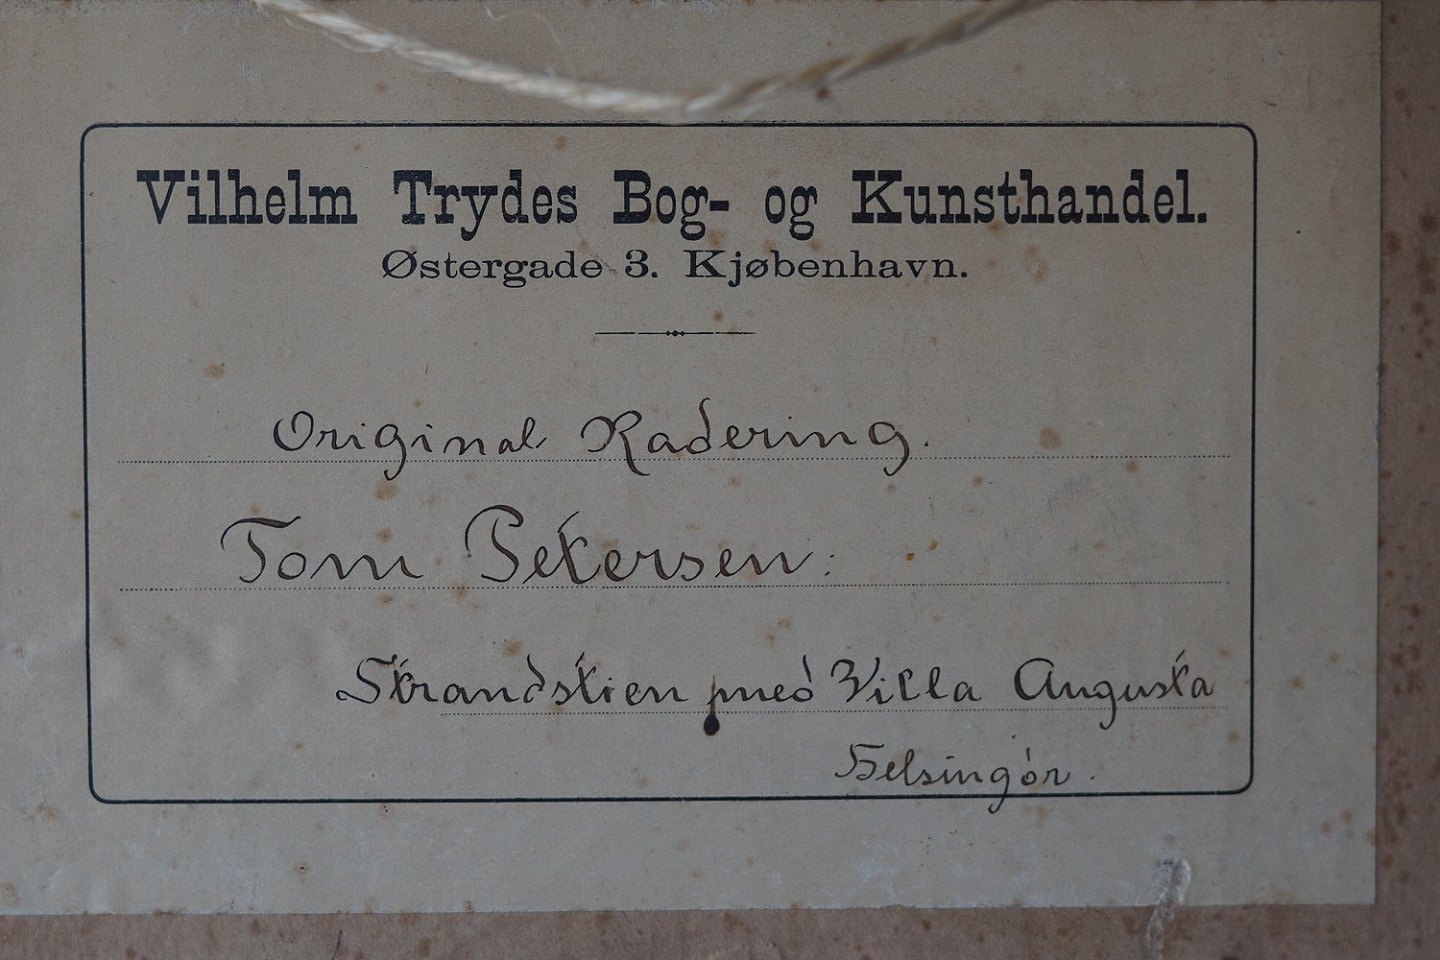 Vilhelm Trydes Bog- og Kunsthandel.
Østergade 3. Kjøbenhavn.
Original Radering.
Tom Petersen:
Strandstien med Villa Augusta
Helsingør.